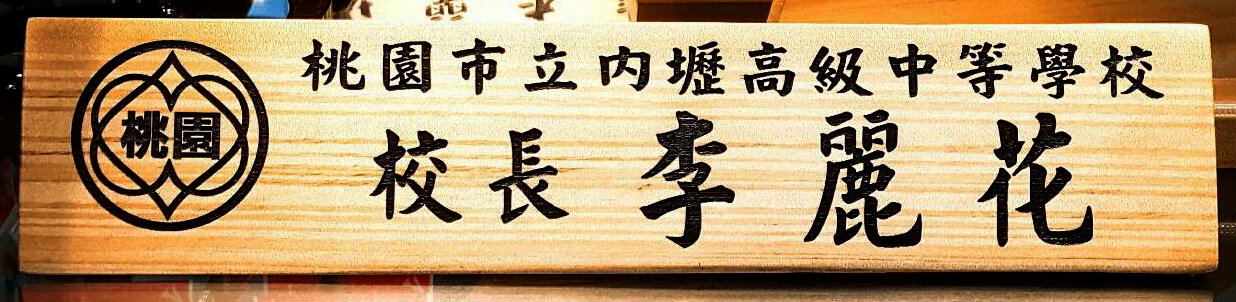 桃園
桃園市立內壢高級中等學校
校長 李麗花